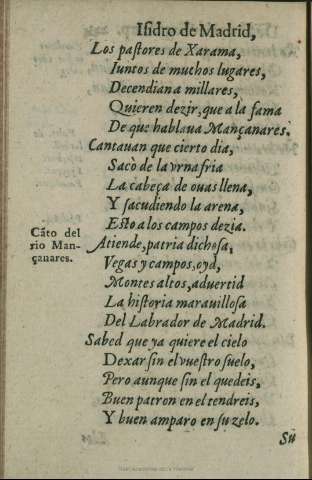 Isidro de Madrid,
Los pastores de Xarama,
Iuntos de muchos lugares,
Decendian a millares,
Quieren dezir, que a la fama
De que hablaua Mançanares.
Cantauan que cierto dia,
Sacò de la vrna fria
La cabeça de ouas llena,
Y sacudiendo la arena,
Esto a los campos dezia.
Cãto del
rio Man-
çanares.
Atiende, patria dichosa,
Vegas y campos, oyd,
Montes altos, aduertid
La historia marauillosa
Del Labrador de Madrid.
Sabed que ya quiere el cielo
Dexar sin el vuestro suelo,
Pero aunque sin el quedeis,
Buen patron en el tendreis,
Y buen amparo en su zelo.
Su